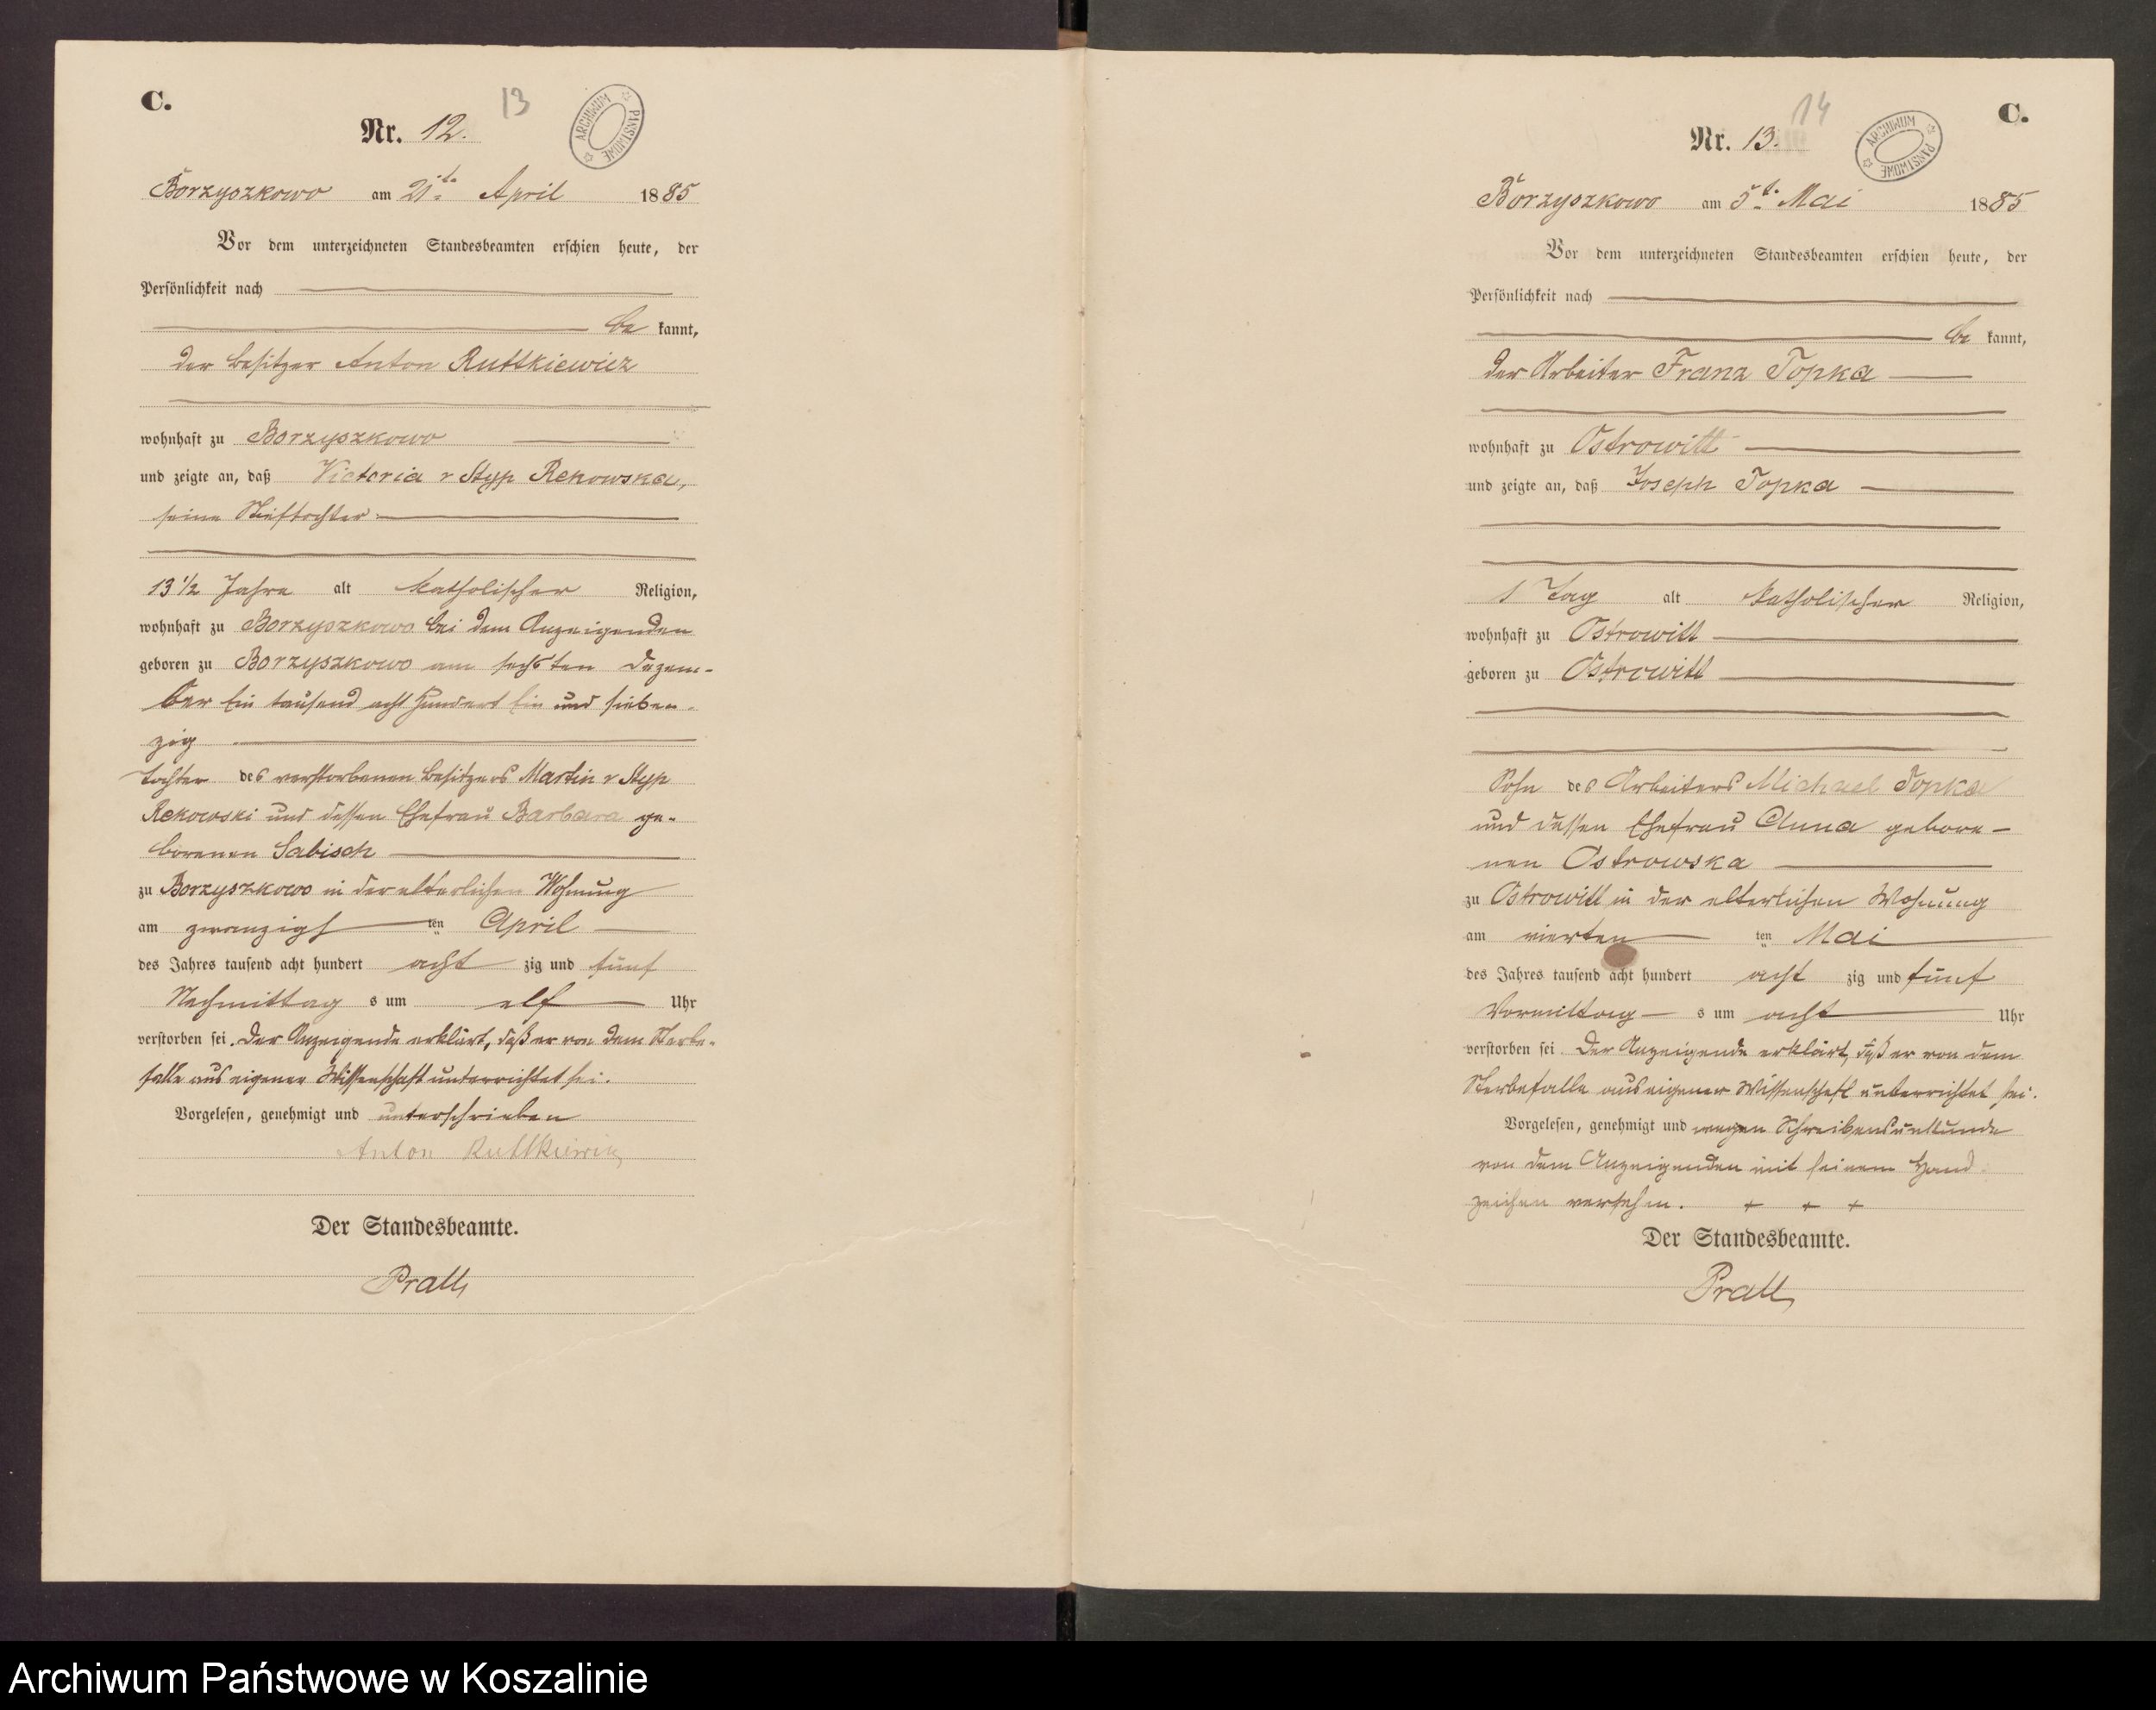 C.
13
Nr. 12.
ARCHIWUM PAŃSTWOWE
Borzyszkowo am 21t. April 1885
Vor dem unterzeichneten Standesbeamten erschien heute, der
Persönlichkeit nach
be kannt,
der Besitzer Anton Ruttkiewicz
wohnhaft zu Borzyszkowo
und zeigte an, daß Victoria v Styp Rekowska,
seine Stieftochter
13 1/2 Jahre alt katholischer Religion,
wohnhaft zu Borzyszkowo bei dem Anzeigenden
geboren zu Borzyszkowo am sechsten Dezem-
ber Ein tausend acht hundert Ein und sieben-
zig
Tochter des verstorbenen Besitzers Martin v Styp
Rekowski und dessen Ehefrau Barbara ge-
borenen Sabisch
zu Borzyszkowo in der elterlichen Wohnung
am zwanzigs ten April
des Jahres tausend acht hundert acht zig und fünf
Nachmittag s um elf Uhr
verstorben sei. Der Anzeigende erklärt, daß er von dem Sterbe-
falle aus eigener Wissenschaft unterrichtet sei.
Vorgelesen, genehmigt und unterschrieben
Anton Ruttkiewicz
Der Standesbeamte.
Pratt
14
C.
Nr. 13.
ARCHIWUM PAŃSTWOWE
Borzyszkowo am 5t. Mai 1885
Vor dem unterzeichneten Standesbeamten erschien heute, der
Persönlichkeit nach
be kannt,
der Arbeiter Franz Topka
wohnhaft zu Ostrowitt
und zeigte an, daß Joseph Topka
1 Tag alt katholischer Religion,
wohnhaft zu Ostrowitt
geboren zu Ostrowitt
Sohn des Arbeiters Michael Topka
und dessen Ehefrau Anna gebore-
nen Ostrowska
zu Ostrowitt in der elterlichen Wohnung
am vierten ten Mai
des Jahres tausend acht hundert acht zig und fünf
Vormittag s um acht Uhr
verstorben sei Der Anzeigende erklärt, daß er von dem
Sterbefalle aus eigener Wissenschaft unterrichtet sei.
Vorgelesen, genehmigt und wegen Schreibensunkunde
von dem Anzeigenden mit seinem Hand
zeichen versehen. + + +
Der Standesbeamte.
Pratt
Archiwum Państwowe w Koszalinie